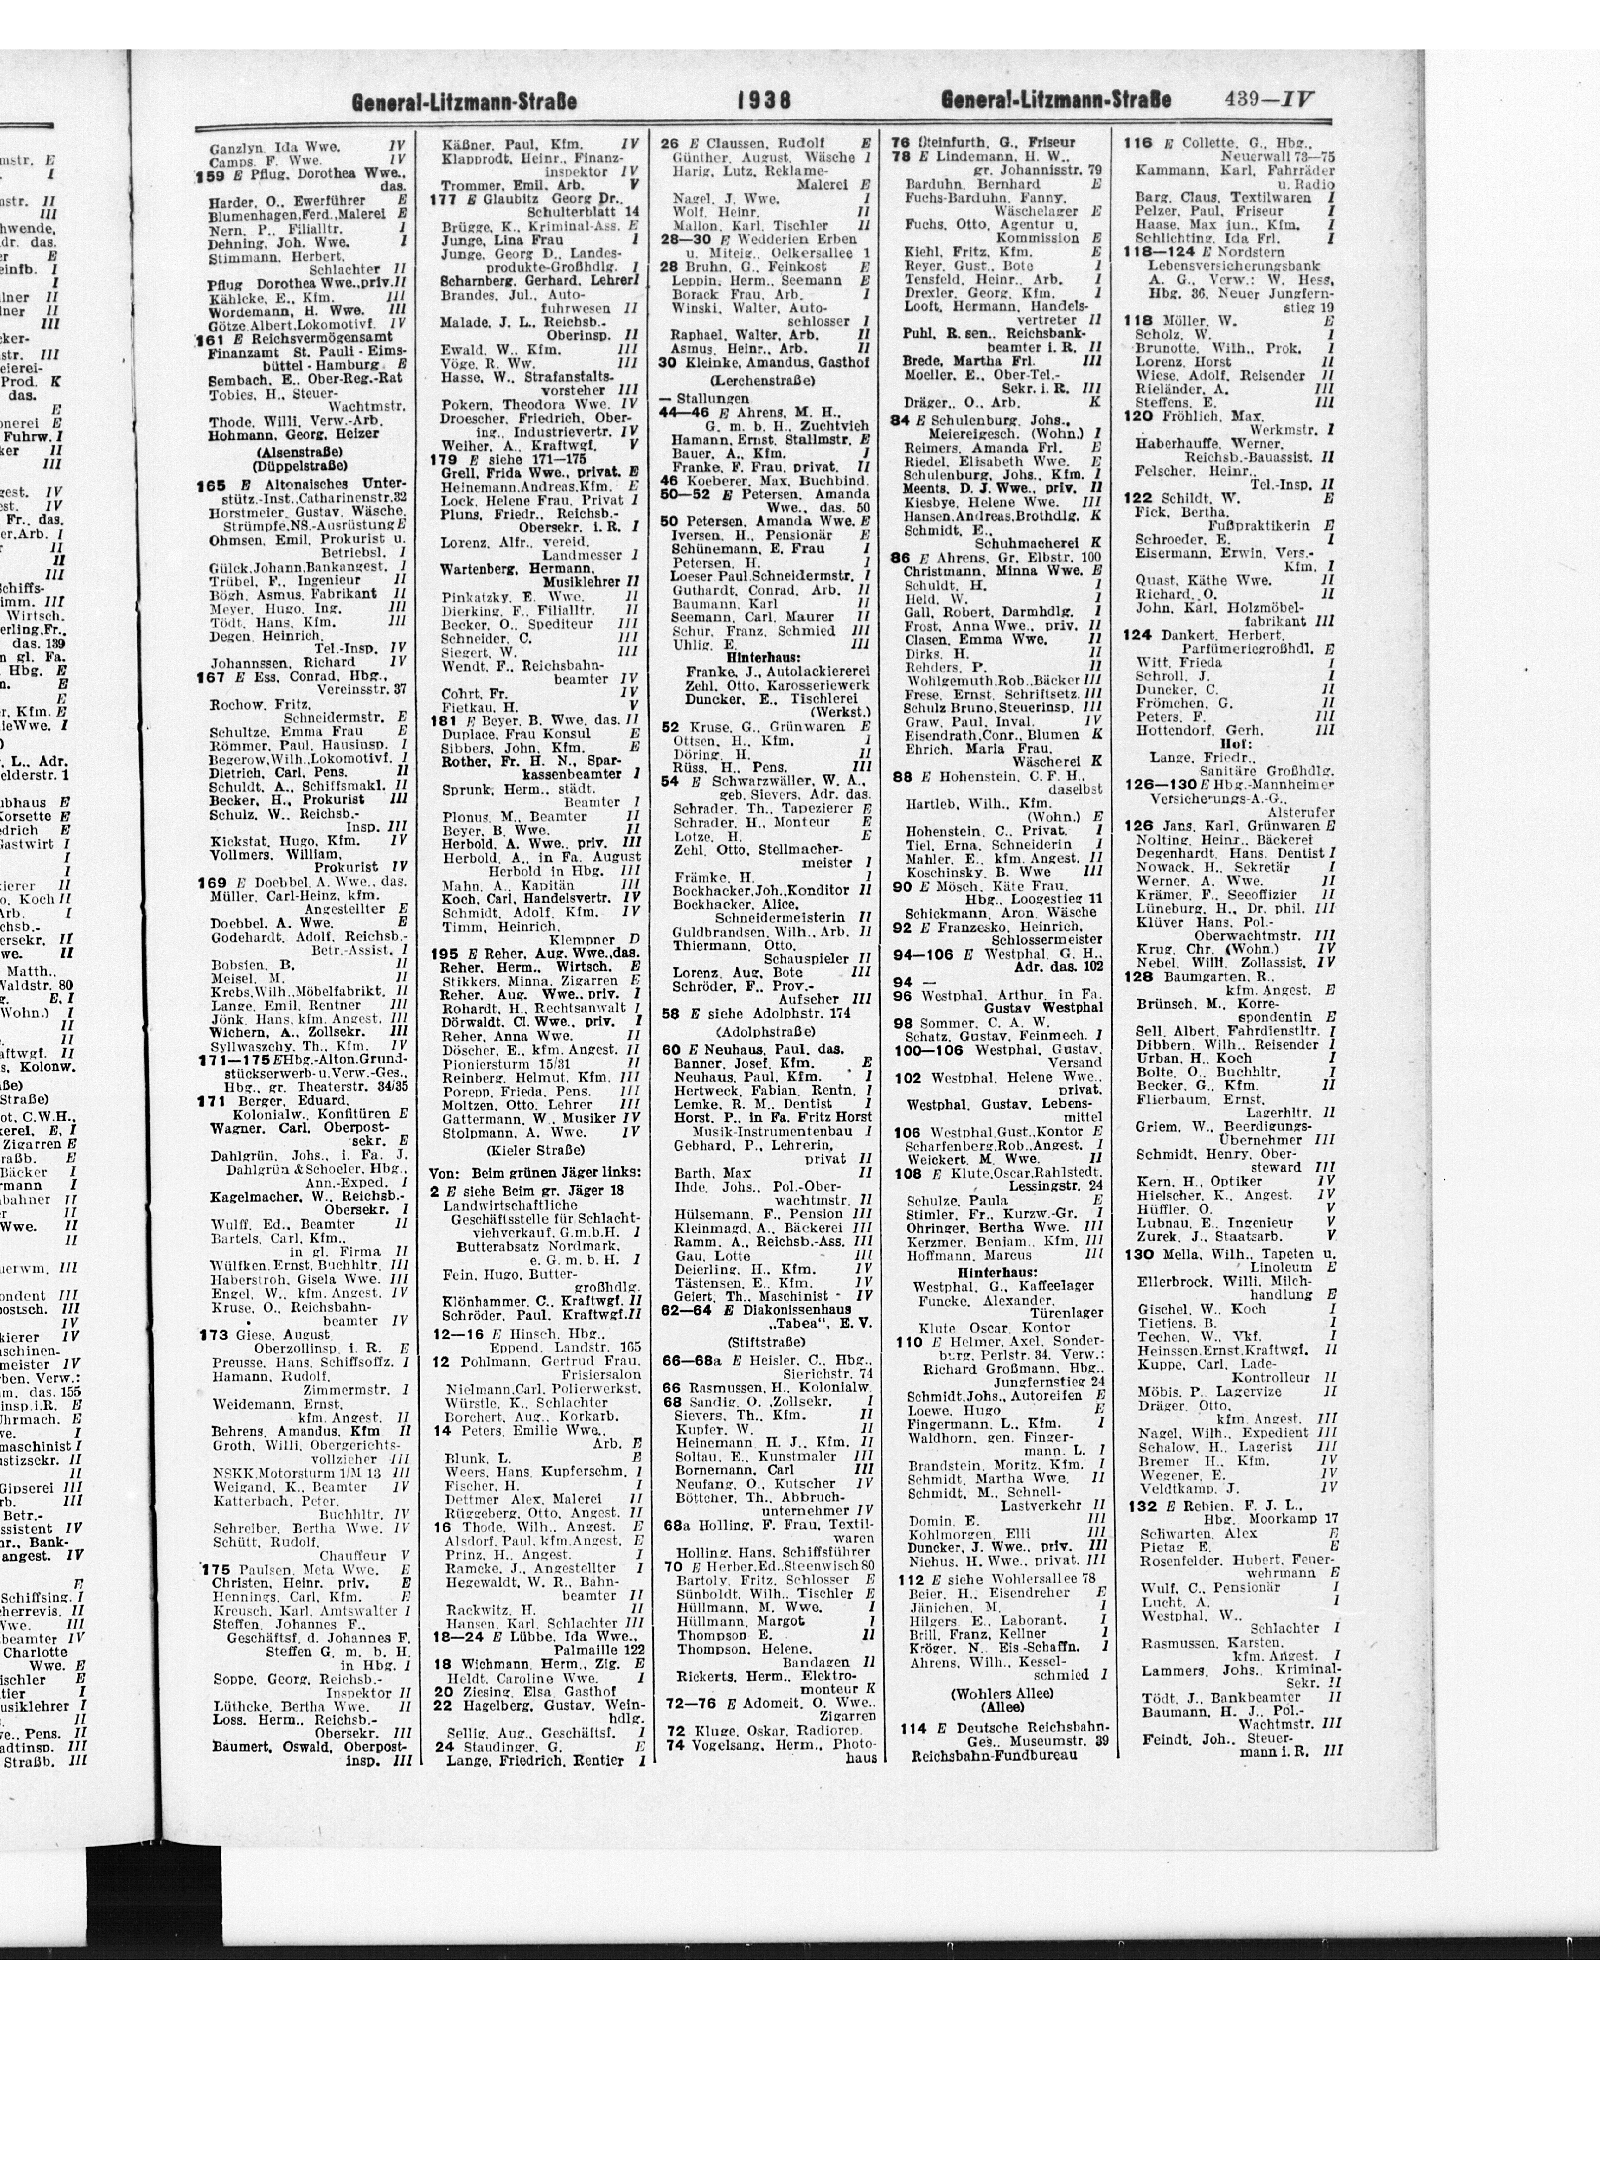 General-Litzmann-Straße 1938 General-Litzmann-Straße 439—IV
Ganzlyn, Ida Wwe. IV
Camps, F. Wwe. IV
159 E Pflug, Dorothea Wwe., das.
Harder, O., Ewerführer E
Blumenhagen,Ferd.,Malerei E
Nern, P., Filialltr. I
Dehning, Joh. Wwe. I
Stimmann, Herbert,
Schlachter II
Pflug Dorothea Wwe.,priv.II
Kählcke, E., Kfm. III
Wordemann, H. Wwe. III
Götze,Albert,Lokomotivf. IV
161 E Reichsvermögensamt
Finanzamt St. Pauli - Eims-
büttel - Hamburg E
Sembach, E., Ober-Reg.-Rat
Tobies, H., Steuer-
Wachtmstr.
Thode, Willi, Verw.-Arb.
Hohmann, Georg, Heizer
(Alsenstraße)
(Düppelstraße)
165 E Altonaisches Unter-
stütz.-Inst.,Catharinenstr.32
Horstmeier, Gustav, Wäsche,
Strümpfe,NS.-Ausrüstung E
Ohmsen, Emil, Prokurist u.
Betriebsl. I
Gülck,Johann,Bankangest. I
Trübel, F., Ingenieur II
Bögh, Asmus, Fabrikant II
Meyer, Hugo, Ing. III
Tödt, Hans, Kfm. III
Degen, Heinrich,
Tel.-Insp. IV
Johannssen, Richard IV
167 E Ess, Conrad, Hbg.,
Vereinsstr. 37
Rochow, Fritz,
Schneidermstr. E
Schultze, Emma Frau E
Römmer, Paul, Hausinsp. I
Begerow,Wilh.,Lokomotivf. I
Dietrich, Carl, Pens. II
Schuldt, A., Schiffsmakl. II
Becker, H., Prokurist III
Schulz, W., Reichsb.-
Insp. III
Kickstat, Hugo, Kfm. IV
Vollmers, William,
Prokurist IV
169 E Doebbel, A. Wwe., das.
Müller, Carl-Heinz, kfm.
Angestellter E
Doebbel, A. Wwe. E
Godehardt, Adolf, Reichsb.-
Betr.-Assist. I
Bobsien, B. II
Meisel, M. II
Krebs,Wilh.,Möbelfabrikt. II
Lange, Emil, Rentner III
Jönk, Hans, kfm. Angest. III
Wichern, A., Zollsekr. III
Syllwaszchy, Th., Kfm. IV
171—175 E Hbg.-Alton.Grund-
stückserwerb-u.Verw.-Ges.,
Hbg., gr. Theaterstr. 34/35
171 Berger, Eduard,
Kolonialw., Konfitüren E
Wagner, Carl, Oberpost-
sekr. E
Dahlgrün, Johs., i. Fa. J.
Dahlgrün & Schoeler, Hbg.,
Ann.-Exped. I
Kagelmacher, W., Reichsb.-
Obersekr. I
Wulff, Ed., Beamter II
Bartels, Carl, Kfm.,
in gl. Firma II
Wülfken,Ernst,Buchhltr. III
Haberstroh, Gisela Wwe. III
Engel, W., kfm. Angest. IV
Kruse, O., Reichsbahn-
beamter IV
173 Giese, August
Oberzollinsp. i. R. E
Preusse, Hans, Schiffsoffz. I
Hamann, Rudolf,
Zimmermstr. I
Weidemann, Ernst,
kfm. Angest. II
Behrens, Amandus, Kfm II
Groth, Willi, Obergerichts-
vollzieher III
NSKK.Motorsturm 1/M 13 III
Weigand, K., Beamter IV
Katterbach, Peter,
Buchhltr. IV
Schreiber, Bertha Wwe. IV
Schütt, Rudolf,
Chauffeur V
175 Paulsen, Meta Wwe. E
Christen, Heinr. priv. E
Hennings, Carl, Kfm. E
Kreusch, Karl, Amtswalter I
Steffen, Johannes F.,
Geschäftsf. d. Johannes F.
Steffen G. m. b. H.
in Hbg. I
Soppe, Georg, Reichsb.-
Inspektor II
Lüthcke, Bertha Wwe. II
Loss, Herm., Reichsb.-
Obersekr. III
Baumert, Oswald, Oberpost-
insp. III
Käßner, Paul, Kfm. IV
Klapprodt, Heinr., Finanz-
inspektor IV
Trommer, Emil, Arb. V
177 E Glaubitz Georg Dr.,
Schulterblatt 14
Brügge, K., Kriminal-Ass. E
Junge, Lina Frau I
Junge, Georg D., Landes-
produkte-Großhdlg. I
Scharnberg, Gerhard, Lehrer I
Brandes, Jul., Auto-
fuhrwesen II
Malade, J. L., Reichsb.-
Oberinsp. II
Ewald, W., Kfm. III
Vöge, R. Ww. III
Hasse, W., Strafanstalts-
vorsteher III
Pokern, Theodora Wwe. IV
Droescher, Friedrich, Ober-
ing., Industrievertr. IV
Weiher, A., Kraftwgf. V
179 E siehe 171—175
Grell, Frida Wwe., privat. E
Heinemann,Andreas,Kfm. E
Lock, Helene Frau, Privat I
Pluns, Friedr., Reichsb.-
Obersekr. i. R. I
Lorenz, Alfr., vereid.
Landmesser I
Wartenberg, Hermann,
Musiklehrer II
Pinkatzky, E. Wwe. II
Dierking, F., Filialltr. II
Becker, O., Spediteur III
Schneider, C. III
Siegert, W. III
Wendt, F., Reichsbahn-
beamter IV
Cohrt, Fr. IV
Fietkau, H. V
181 E Beyer, B. Wwe, das. II
Duplace, Frau Konsul E
Sibbers, John, Kfm. E
Rother, Fr. H. N., Spar-
kassenbeamter I
Sprunk, Herm., städt.
Beamter I
Plonus, M., Beamter II
Beyer, B. Wwe. II
Herbold, A. Wwe., priv. III
Herbold, A., in Fa. August
Herbold in Hbg. III
Mahn, A., Kapitän III
Koch, Carl, Handelsvertr. IV
Schmidt, Adolf, Kfm. IV
Timm, Heinrich,
Klempner D
195 E Reher, Aug. Wwe.,das.
Reher, Herm., Wirtsch. E
Stikkers, Minna, Zigarren E
Reher, Aug. Wwe., priv. I
Rohardt, H., Rechtsanwalt I
Dörwaldt, Cl. Wwe., priv. I
Reher, Anna Wwe. II
Döscher, E., kfm. Angest. II
Pioniersturm 15/31 II
Reinberg, Helmut, Kfm. III
Porepp, Frieda, Pens. III
Moltzen, Otto, Lehrer III
Gattermann, W., Musiker IV
Stolpmann, A. Wwe. IV
(Kieler Straße)
Von: Beim grünen Jäger links:
2 E siehe Beim gr. Jäger 18
Landwirtschaftliche
Geschäftsstelle für Schlacht-
viehverkauf, G.m.b.H. I
Butterabsatz Nordmark,
e. G. m. b. H. I
Fein, Hugo, Butter-
großhdlg.
Klönhammer, C., Kraftwgf. II
Schröder, Paul, Kraftwgf.II
12—16 E Hinsch, Hbg.,
Eppend. Landstr. 165
12 Pohlmann, Gertrud Frau,
Frisiersalon
Nielmann,Carl, Polierwerkst.
Würstle, K., Schlachter
Borchert, Aug., Korkarb.
14 Peters, Emilie Wwe.,
Arb. E
Blunk, L. E
Weers, Hans, Kupferschm. I
Fischer, H. I
Dettmer Alex, Malerei II
Rüggeberg, Otto, Angest. II
16 Thode, Wilh., Angest. E
Alsdorf, Paul, kfm.Angest. E
Prinz, H., Angest. I
Ramcke, J., Angestellter I
Hegewaldt, W. R., Bahn-
beamter II
Rackwitz, H. II
Hansen, Karl, Schlachter III
18—24 E Lübbe, Ida Wwe.,
Palmaille 122
18 Wichmann, Herm., Zig. E
Heldt, Caroline Wwe. I
20 Ziesing, Elsa, Gasthof
22 Hagelberg, Gustav, Wein-
hdlg.
Sellig, Aug., Geschäftsf. I
24 Staudinger, G. E
Lange, Friedrich, Rentier I
26 E Claussen, Rudolf E
Günther, August, Wäsche I
Harig, Lutz, Reklame-
Malerei E
Nagel, J. Wwe. I
Wolf, Heinr. II
Mallon, Karl, Tischler II
28—30 E Wedderien Erben
u. Miteig., Oelkersallee 1
28 Bruhn, G., Feinkost E
Leppin, Herm., Seemann E
Borack Frau, Arb. I
Winski, Walter, Auto-
schlosser I
Raphael, Walter, Arb. II
Asmus, Heinr., Arb. II
30 Kleinke, Amandus, Gasthof
(Lerchenstraße)
— Stallungen
44—46 E Ahrens, M. H.,
G. m. b. H., Zuchtvieh
Hamann, Ernst, Stallmstr. E
Bauer, A., Kfm. I
Franke, F. Frau, privat. II
46 Koeberer, Max, Buchbind.
50—52 E Petersen, Amanda
Wwe., das. 50
50 Petersen, Amanda Wwe. E
Iversen, H., Pensionär E
Schünemann, E. Frau I
Petersen, H. I
Loeser, Paul,Schneidermstr. I
Guthardt, Conrad, Arb. II
Baumann, Karl II
Seemann, Carl, Maurer II
Schur, Franz, Schmied III
Uhlig, E. III
Hinterhaus:
Franke, J., Autolackiererei
Zehl, Otto, Karosseriewerk
Duncker, E., Tischlerei
(Werkst.)
52 Kruse, G., Grünwaren E
Ottsen, H., Kfm. I
Döring, H. II
Rüss, H., Pens. III
54 E Schwarzwäller, W. A.,
geb. Sievers, Adr. das.
Schrader, Th., Tapezierer E
Schrader, H., Monteur E
Lotze, H. E
Zehl, Otto, Stellmacher-
meister I
Främke, H. I
Bockhacker,Joh.,Konditor II
Bockhacker, Alice,
Schneidermeisterin II
Guldbrandsen, Wilh., Arb. II
Thiermann, Otto,
Schauspieler II
Lorenz, Aug, Bote III
Schröder, F., Prov.-
Aufseher III
58 E siehe Adolphstr. 174
(Adolphstraße)
60 E Neuhaus, Paul, das.
Banner, Josef, Kfm. E
Neuhaus, Paul, Kfm. I
Hertweck, Fabian, Rentn. I
Lemke, R. M., Dentist I
Horst, P., in Fa. Fritz Horst
Musik-Instrumentenbau I
Gebhard, P., Lehrerin,
privat II
Barth, Max II
Ihde, Johs., Pol.-Ober-
wachtmstr. II
Hülsemann, F., Pension III
Kleinmagd, A., Bäckerei III
Ramm, A., Reichsb.-Ass. III
Gau, Lotte III
Deierling, H., Kfm. IV
Tästensen, E., Kfm. IV
Geiert, Th., Maschinist IV
62—64 E Diakonissenhaus
„Tabea“, E. V.
(Stiftstraße)
66—68a E Heisler, C., Hbg.,
Sierichstr. 74
66 Rasmussen, H., Kolonialw.
68 Sandig, O. ,Zollsekr. I
Sievers, Th., Kfm. II
Kupfer, W. II
Heinemann, H. J., Kfm. II
Soltau, E., Kunstmaler III
Bornemann, Carl III
Neufang, O., Kutscher IV
Böttcher, Th., Abbruch-
unternehmer IV
68a Holling, F. Frau, Textil-
waren
Holling, Hans, Schiffsführer
70 E Herber,Ed.,Steenwisch 80
Bartoly, Fritz, Schlosser E
Sünboldt, Wilh., Tischler E
Hüllmann, M. Wwe. I
Hüllmann, Margot I
Thompson E. II
Thompson, Helene,
Bandagen II
Rickerts, Herm., Elektro-
monteur K
72—76 E Adomeit, O. Wwe.,
Zigarren
72 Kluge, Oskar, Radiorep.
74 Vogelsang, Herm., Photo-
haus
76 Steinfurth, G., Friseur
78 E Lindemann, H. W.,
gr. Johannisstr. 79
Barduhn, Bernhard E
Fuchs-Barduhn, Fanny,
Wäschelager E
Fuchs, Otto, Agentur u.
Kommission E
Kiehl, Fritz, Kfm. E
Reyer, Gust., Bote I
Tensfeld, Heinr., Arb. I
Drexler, Georg, Kfm. I
Looft, Hermann, Handels-
vertreter II
Puhl, R. sen., Reichsbank-
beamter i. R. II
Brede, Martha Frl. III
Moeller, E., Ober-Tel.-
Sekr. i. R. III
Dräger., O., Arb. K
84 E Schulenburg, Johs.,
Meiereigesch. (Wohn.) I
Reimers, Amanda Frl. E
Riedel, Elisabeth Wwe. E
Schulenburg, Johs., Kfm. I
Meents, D. J. Wwe., priv. II
Kiesbye, Helene Wwe. III
Hansen,Andreas,Brothdlg. K
Schmidt, E.,
Schuhmacherei K
86 E Ahrens, Gr. Elbstr. 100
Christmann, Minna Wwe. E
Schuldt, H. I
Held, W. I
Gall, Robert, Darmhdlg. I
Frost, Anna Wwe., priv. II
Clasen, Emma Wwe. II
Dirks, H. II
Rehders, P. II
Wohlgemuth,Rob.,Bäcker III
Frese, Ernst, Schriftsetz. III
Schulz Bruno,Steuerinsp. III
Graw, Paul, Inval. IV
Eisendrath,Conr., Blumen K
Ehrich, Maria Frau,
Wäscherei K
88 E Hohenstein, C. F. H.,
daselbst
Hartleb, Wilh., Kfm.
(Wohn.) E
Hohenstein, C., Privat. I
Tiel, Erna, Schneiderin I
Mahler, E., kfm. Angest. II
Koschinsky, B. Wwe III
90 E Mösch, Käte Frau,
Hbg., Loogestieg 11
Schickmann, Aron, Wäsche
92 E Franzesko, Heinrich,
Schlossermeister
94—106 E Westphal, G. H.,
Adr. das. 102
94 —
96 Westphal, Arthur, in Fa.
Gustav Westphal
98 Sommer, C. A. W.
Schatz, Gustav, Feinmech. I
100—106 Westphal, Gustav,
Versand
102 Westphal, Helene Wwe.,
privat.
Westphal, Gustav, Lebens-
mittel
106 Westphal,Gust.,Kontor E
Scharfenberg,Rob.,Angest. I
Weickert, M. Wwe. II
108 E Klute,Oscar,Rahlstedt,
Lessingstr. 24
Schulze, Paula E
Stimler, Fr., Kurzw.-Gr. I
Ohringer, Bertha Wwe. III
Kerzmer, Benjam., Kfm. III
Hoffmann, Marcus III
Hinterhaus:
Westphal, G., Kaffeelager
Funcke, Alexander,
Türenlager
Klute Oscar, Kontor
110 E Helmer, Axel, Sonder-
burg, Perlstr. 34, Verw.:
Richard Großmann, Hbg.,
Jungfernstieg 24
Schmidt,Johs., Autoreifen E
Loewe, Hugo E
Fingermann, L., Kfm. I
Waldhorn, gen. Finger-
mann, L. I
Brandstein, Moritz, Kfm. I
Schmidt, Martha Wwe. II
Schmidt, M., Schnell-
Lastverkehr II
Domin, E. III
Kohlmorgen, Elli III
Duncker, J. Wwe., priv. III
Niehus, H. Wwe., privat. III
112 E siehe Wohlersallee 78
Beier, H., Eisendreher E
Jänichen, M. I
Hilgers, E., Laborant. I
Brill, Franz, Kellner I
Kröger, N., Eis.-Schaffn. I
Ahrens, Wilh., Kessel-
schmied I
(Wohlers Allee)
(Allee)
114 E Deutsche Reichsbahn-
Ges., Museumstr. 39
Reichsbahn-Fundbureau
116 E Collette, G., Hbg.,
Neuerwall 73—75
Kammann, Karl, Fahrräder
u. Radio
Barg, Claus, Textilwaren I
Pelzer, Paul, Friseur I
Haase, Max jun., Kfm. I
Schlichting, Ida Frl. I
118—124 E Nordstern
Lebensversicherungsbank
A. G., Verw.: W. Hess,
Hbg. 36, Neuer Jungfern-
stieg 19
118 Möller, W. E
Scholz, W. I
Brunotte, Wilh., Prok. I
Lorenz, Horst II
Wiese, Adolf, Reisender II
Rieländer, A. III
Steffens, E. III
120 Fröhlich, Max,
Werkmstr. I
Haberhauffe, Werner,
Reichsb.-Bauassist. II
Felscher, Heinr.,
Tel.-Insp. II
122 Schildt, W. E
Fick, Bertha,
Fußpraktikerin E
Schroeder, E. I
Eisermann, Erwin, Vers.-
Kfm. I
Quast, Käthe Wwe. II
Richard, O. II
John, Karl, Holzmöbel-
fabrikant III
124 Dankert, Herbert,
Parfümeriegroßhdl. E
Witt, Frieda I
Schroll, J. I
Duncker, C. II
Frömchen, G. II
Peters, F. III
Hottendorf, Gerh. III
Hof:
Lange, Friedr.,
Sanitäre Großhdlg.
126—130 E Hbg.-Mannheimer
Versicherungs-A.-G.,
Alsterufer
126 Jans, Karl, Grünwaren E
Nolting, Heinr., Bäckerei
Degenhardt, Hans, Dentist I
Nowack, H., Sekretär I
Werner, A. Wwe. II
Krämer, F., Seeoffizier II
Lüneburg, H., Dr. phil. III
Klüver Hans, Pol.-
Oberwachtmstr. III
Krug, Chr. (Wohn.) IV
Nebel, Willi, Zollassist. IV
128 Baumgarten, R.,
kfm. Angest. E
Brünsch, M., Korre-
spondentin E
Sell, Albert, Fahrdienstltr. I
Dibbern, Wilh., Reisender I
Urban, H., Koch I
Bolte, O., Buchhltr. I
Becker, G., Kfm. II
Flierbaum, Ernst,
Lagerhltr. II
Griem, W., Beerdigungs-
Übernehmer III
Schmidt, Henry, Ober-
steward III
Kern, H., Optiker IV
Hielscher, K., Angest. IV
Hüffler, O. V
Lubnau, E., Ingenieur V
Zurek, J., Staatsarb. V
130 Mella, Wilh., Tapeten u.
Linoleum E
Ellerbrock, Willi, Milch-
handlung E
Gischel, W., Koch I
Tietiens, B. I
Techen, W., Vkf. I
Heinssen,Ernst,Kraftwgf. II
Kuppe, Carl, Lade-
Kontrolleur II
Möbis, P., Lagervize II
Dräger, Otto,
kfm. Angest. III
Nagel, Wilh., Expedient III
Schalow, H., Lagerist III
Bremer H., Kfm. IV
Wegener, E. IV
Veldtkamp, J. IV
132 E Rebien, F. J. L.,
Hbg. Moorkamp 17
Schwarten, Alex E
Pietag E. E
Rosenfelder, Hubert, Feuer-
wehrmann E
Wulf, C., Pensionär I
Lucht, A. I
Westphal, W.,
Schlachter I
Rasmussen, Karsten,
kfm. Angest. I
Lammers, Johs., Kriminal-
Sekr. II
Tödt, J., Bankbeamter II
Baumann, H. J., Pol.-
Wachtmstr. III
Feindt, Joh., Steuer-
mann i. R. III